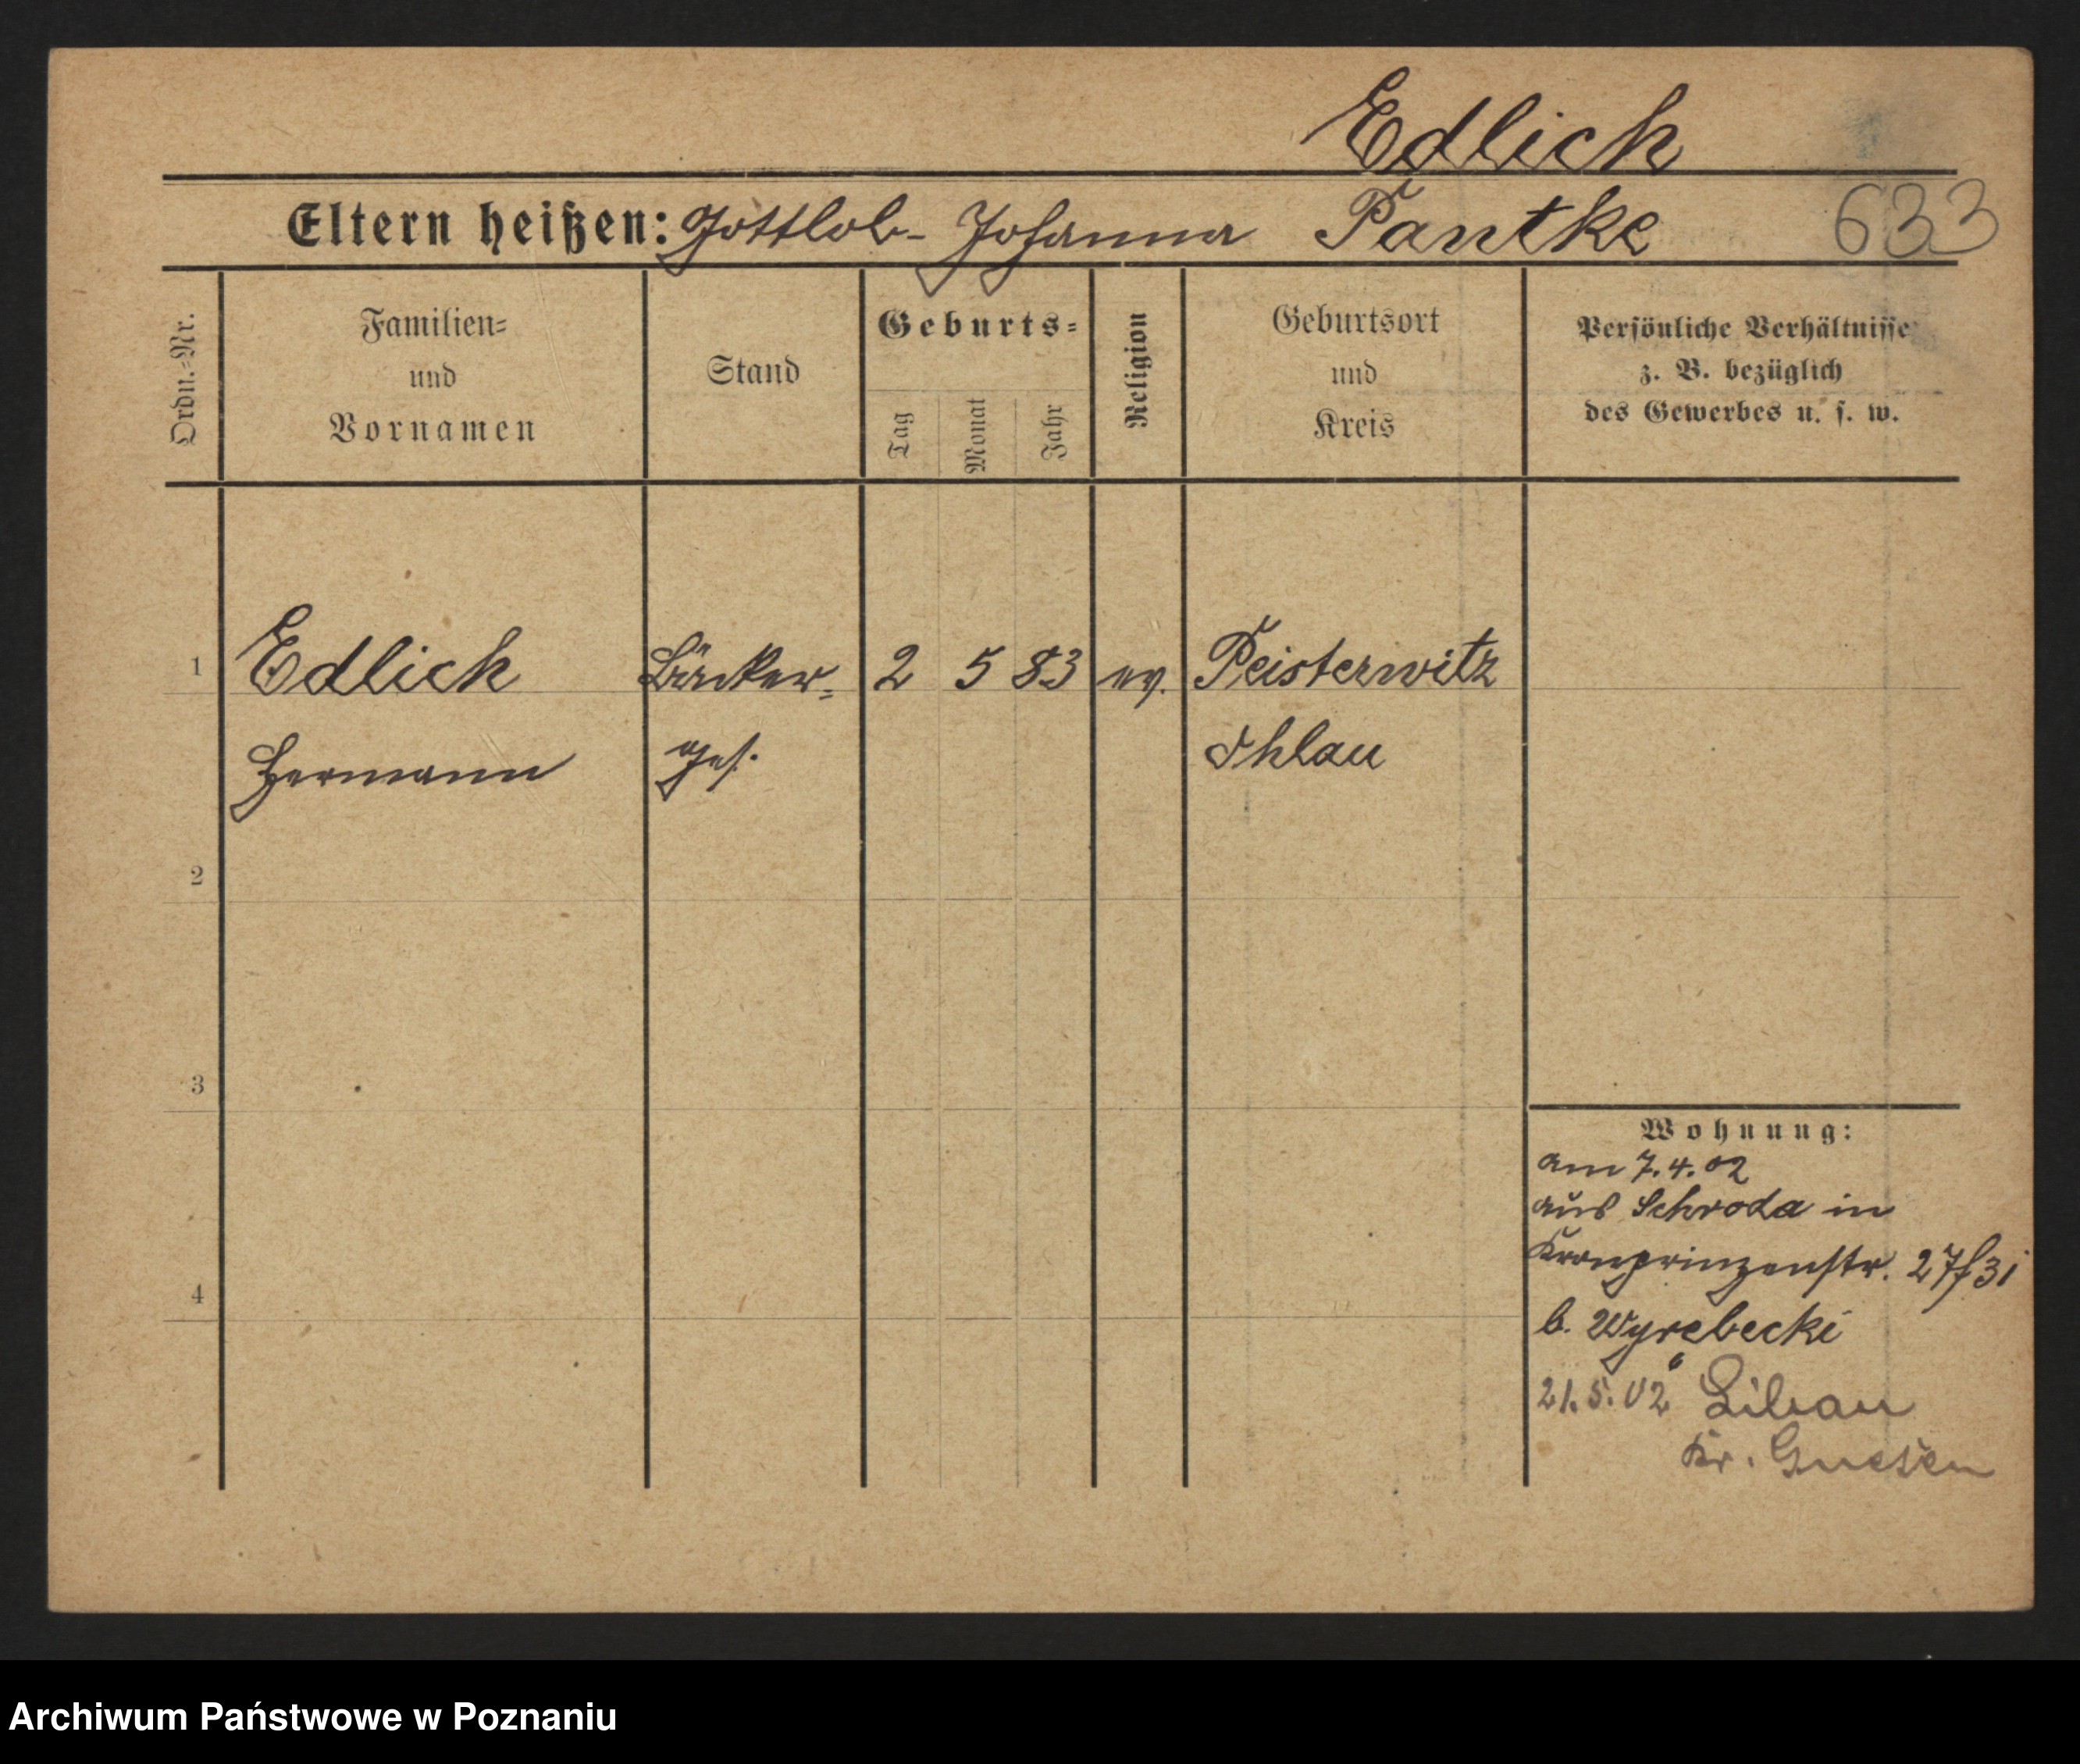 Edlich
Eltern heißen: Gottlob - Johanna Pantke 633
Ordn.=Nr.
Familien=
und
Vornamen
Stand
Geburts=
Tag
Monat
Jahr
Religion
Geburtsort
und
Kreis
Persönliche Verhältnisse
z. B. bezüglich
des Gewerbes u. s. w.
1 Edlich Bäcker= 2 5 83 ev. Peisterwitz
Hermann ges. Ohlau
2
3
4
Wohnung:
am 7.4.02
aus Schroda in
Kronprinzenstr. 27/31
b. Wyrebecki
21.5.02 Libau
Kr. Gnesen
Archiwum Państwowe w Poznaniu